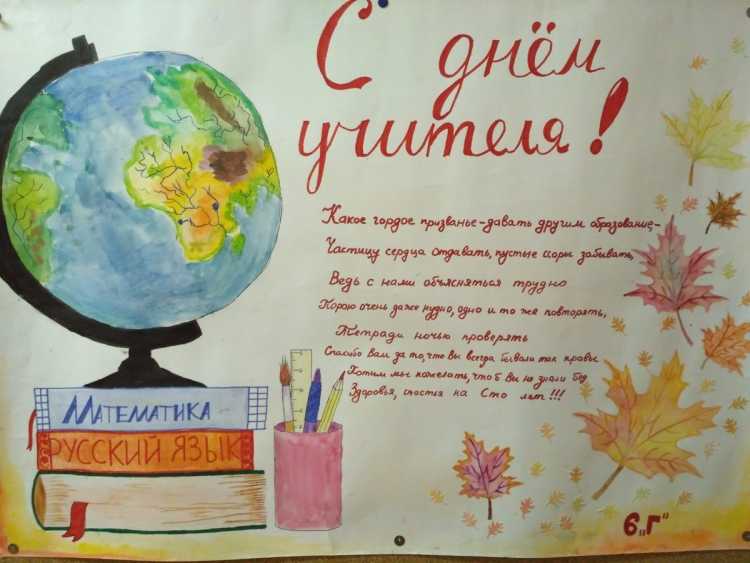 С днём
учителя!
Какое гордое призванье-давать другим образование,-
Частицу сердца отдавать, пустые ссоры забывать,
Ведь с нами объясняться трудно
Порою очень даже нудно, одно и то же повторять,
Тетради ночью проверять
Спасибо вам за то, что вы всегда бывали так правы
Хотим мы пожелать, чтоб вы не знали бед
Здоровья, счастья на сто лет!!!
Математика
Русский язык
6„Г“